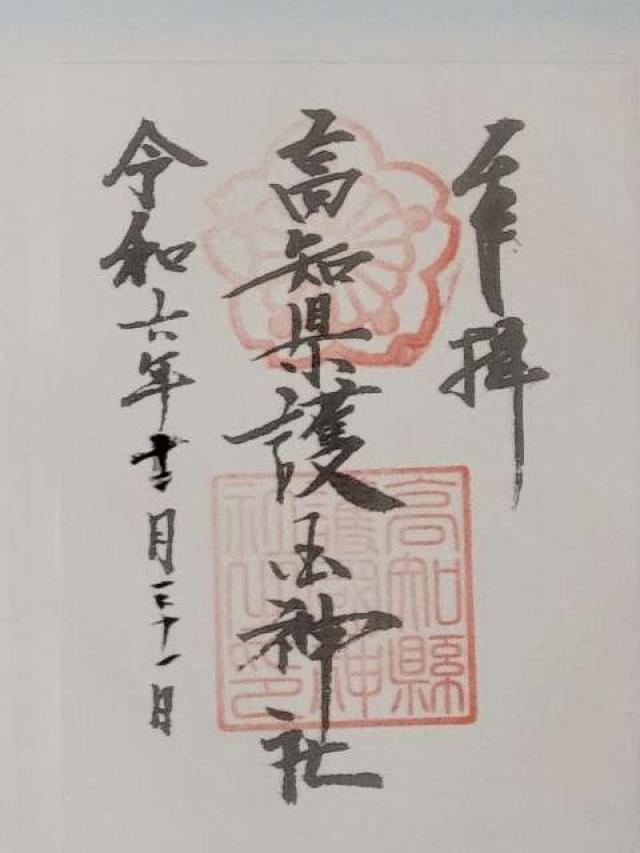 奉拝
高知県護国神社
令和六年十二月三十一日
高知縣
護國神
社之印